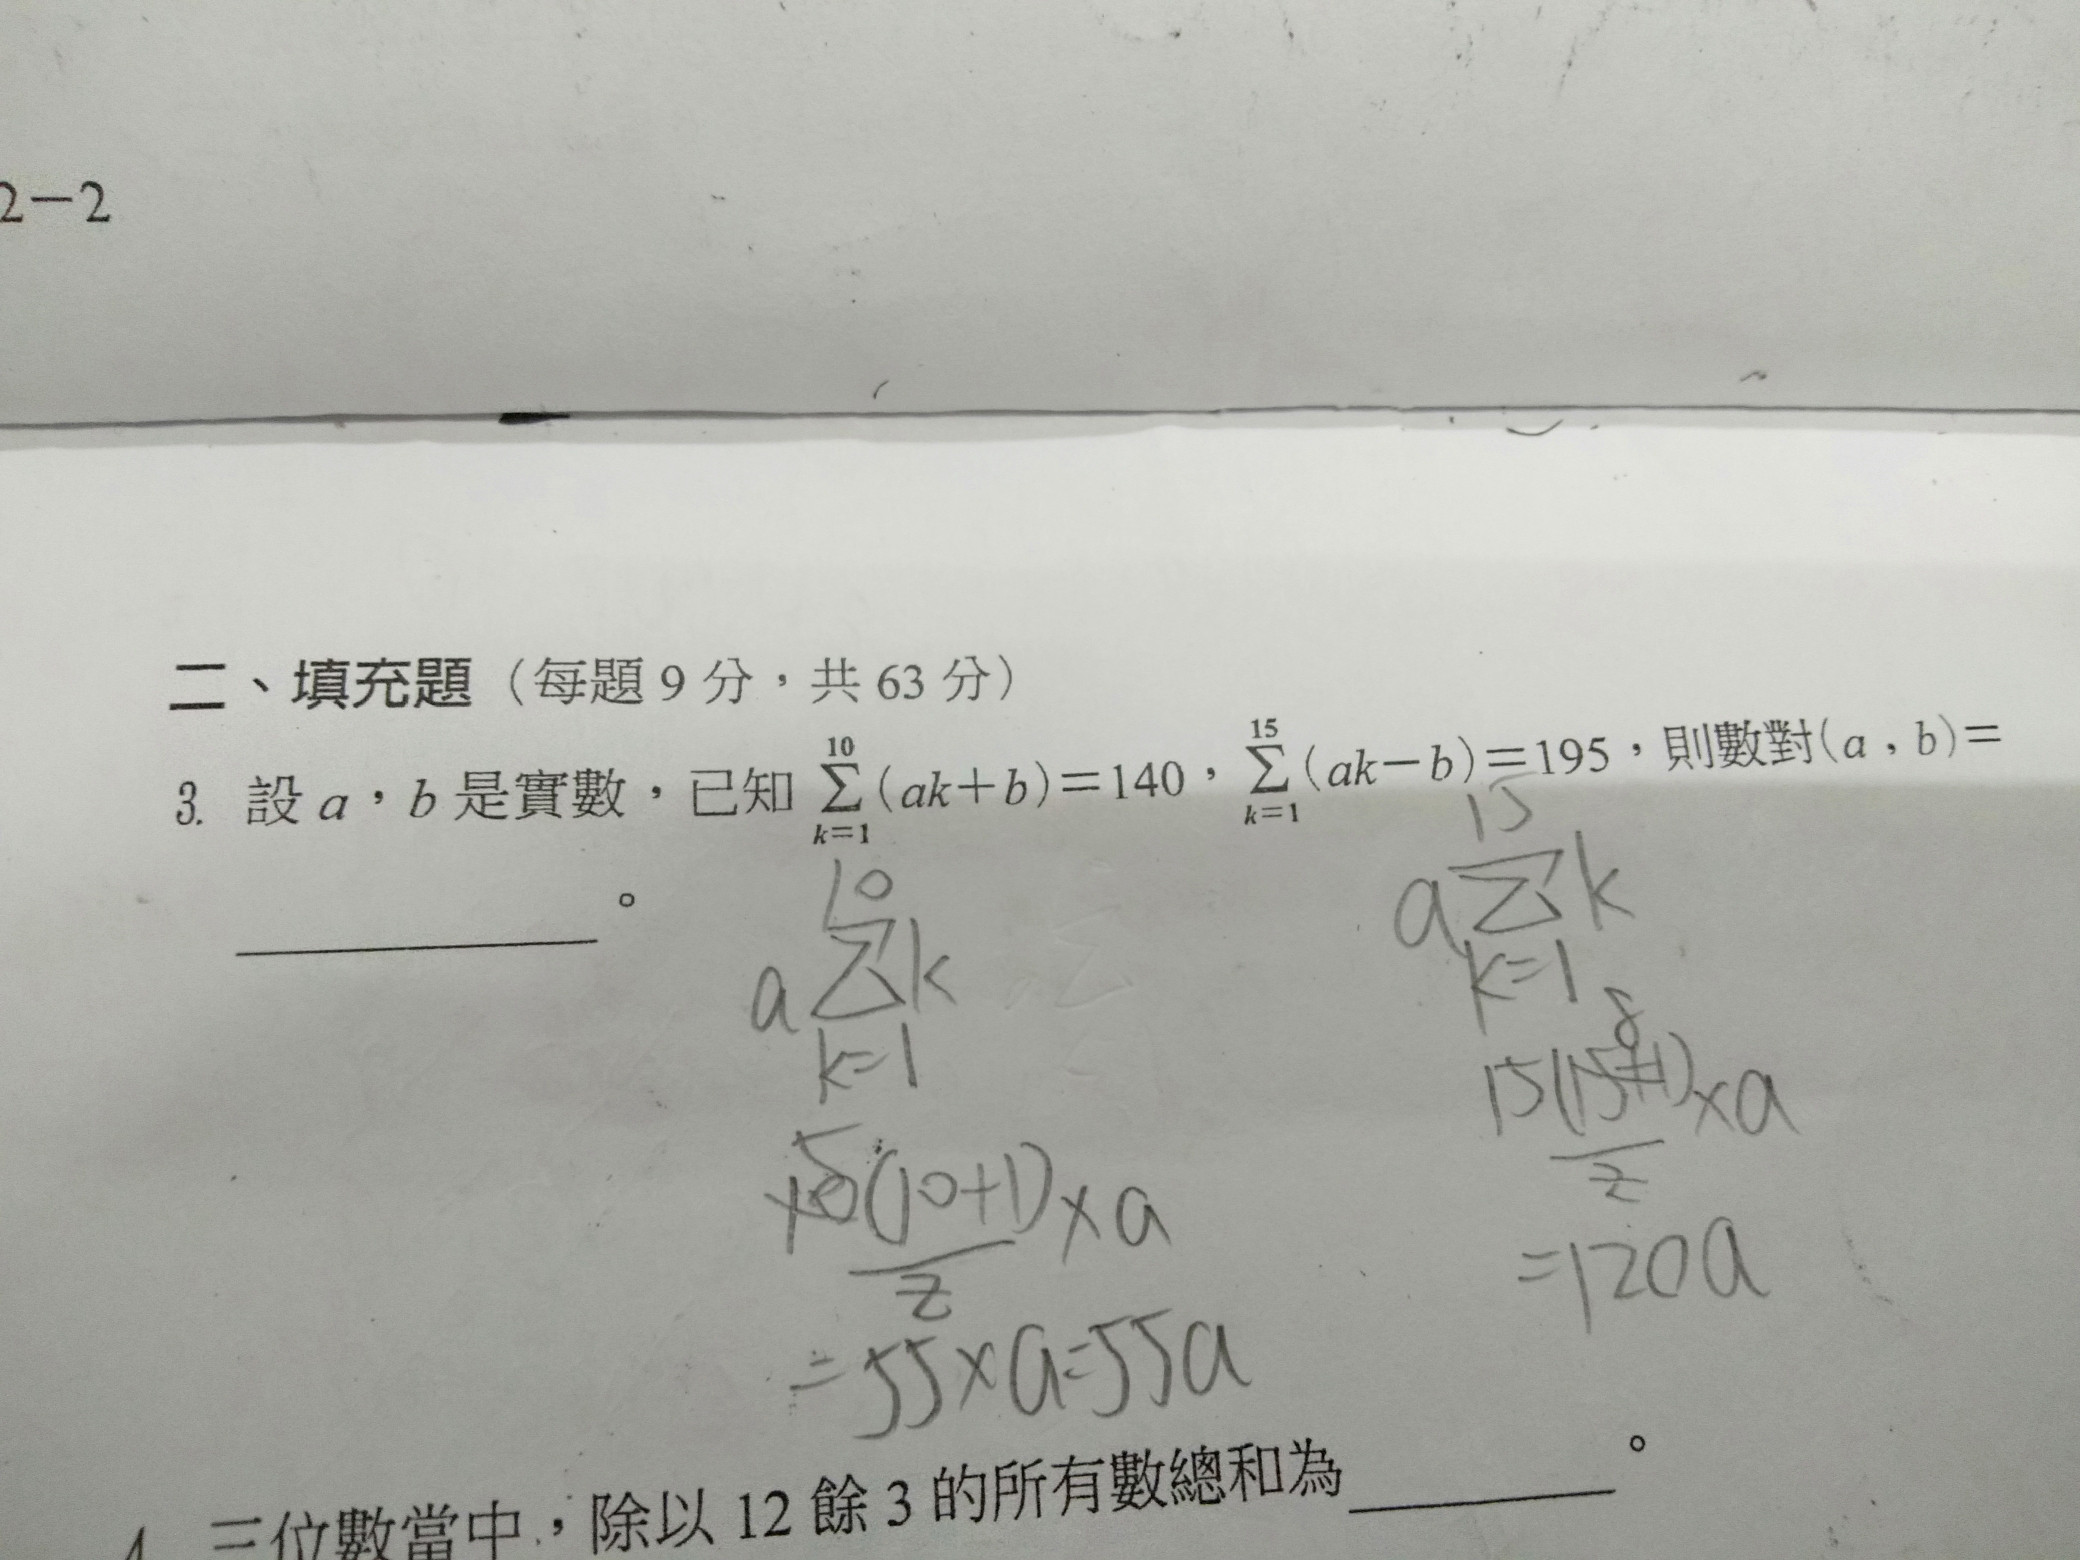 2－2
二、填充題（每題 9 分，共 63 分）
3. 設 a，b 是實數，已知 \sum_{k=1}^{10}(ak＋b)＝140，\sum_{k=1}^{15}(ak－b)＝195，則數對(a，b)＝
＿＿＿＿。
a \sum_{k=1}^{10} k
10(10+1)/2 × a
5
= 55×a=55a
a \sum_{k=1}^{15} k
15(15+1)/2 × a
8
=120a
4. 三位數當中，除以 12 餘 3 的所有數總和為＿＿＿＿。